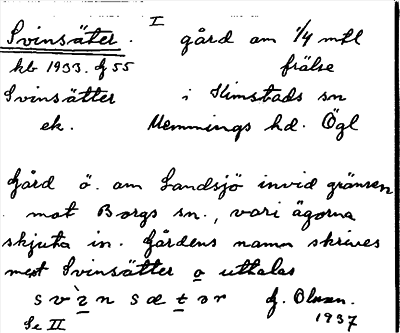 I
Svinsäter. gård om 1/4 mtl
kb 1933. f 55 frälse
Svinsätter i Kimstads sn
ek. Memmings hd. Ögl
Gård ö. om Landsjö invid gränsen
mot Borgs sn., vari ägorna
skjuta in. Gårdens namn skrives
mest Svinsätter o uttalas
svìnsætər G. Olsson.
Se II 1937